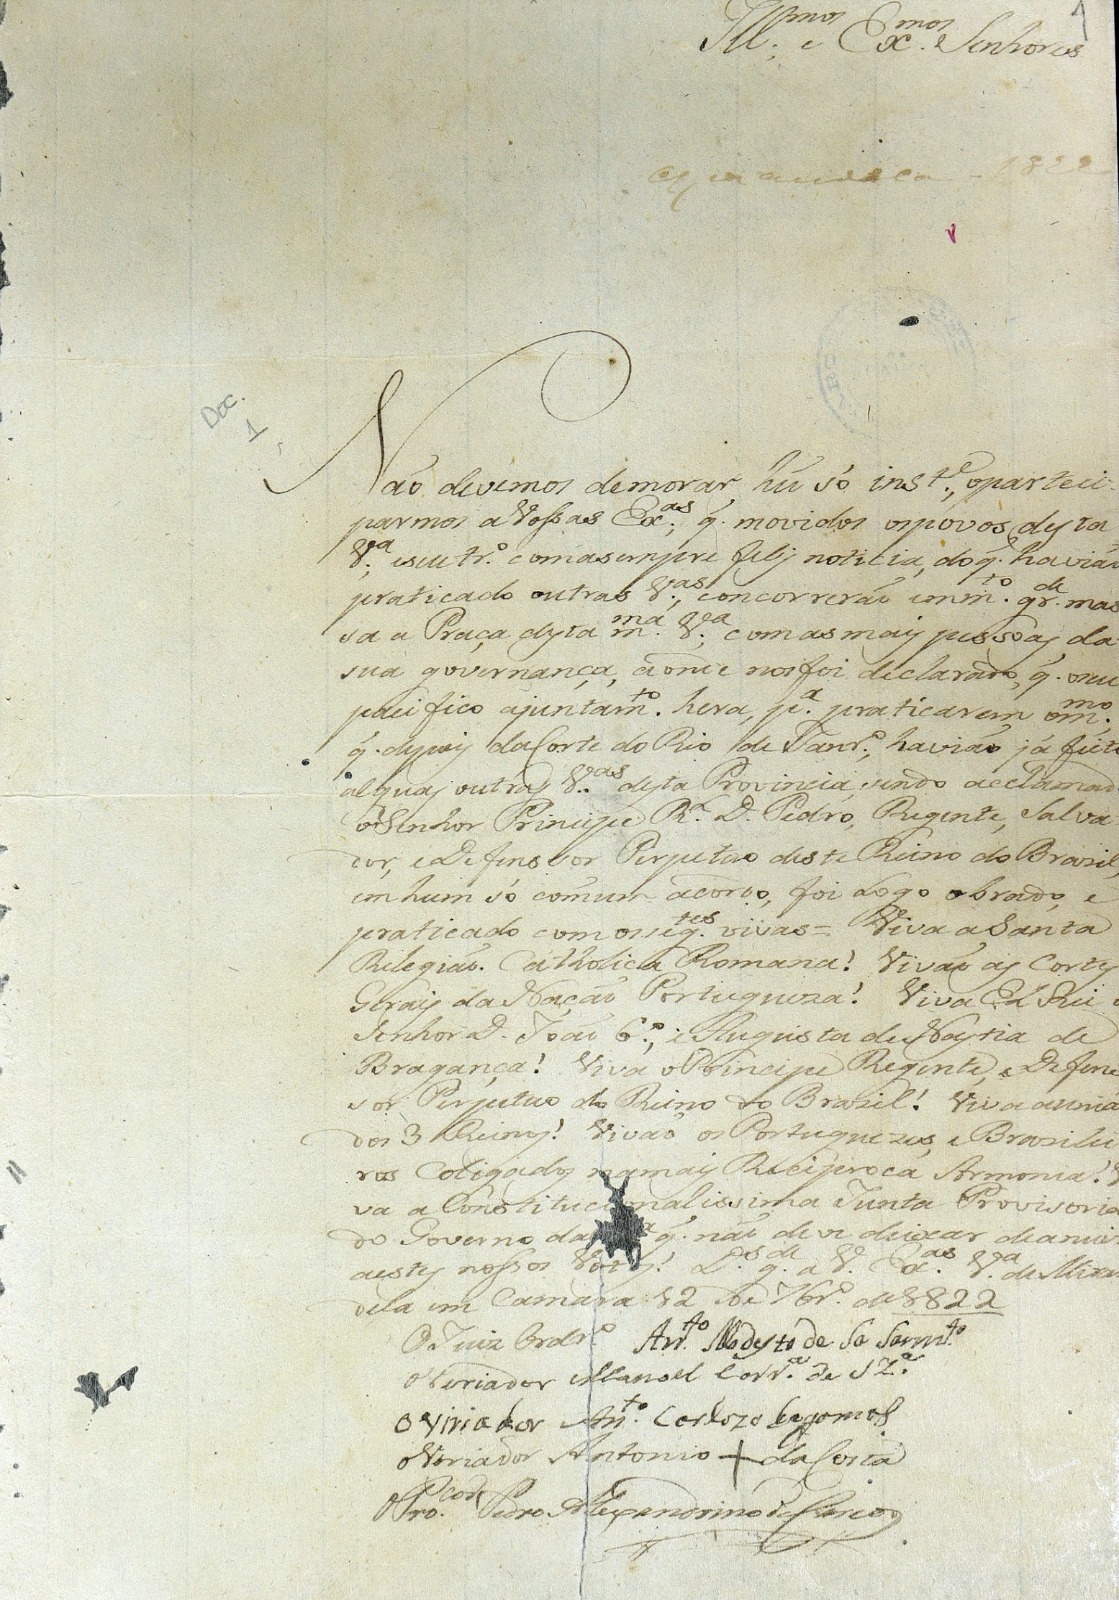 Ill.mos e Ex.mos Senhores
1
Mirandella - 1822
Doc.
1
Não devemos demorar hũ só inst.e, oparteci-
parmos a Vossas Ex.as, q. movidos ospovos desta
V.a, eseu tr.o comasempre feliz noticia, doq. havião
praticado outras V.as, concorrerão emm.to gr.de mas
sa a Praça desta m.ma V.a comasmais pessoas da
sua governança, aonde nosfoi declarado, q. oseu
pacifico ajuntam.to hera, p.a praticarem om.mo
q. depois da Corte do Rio de Janr.o, havião já feito
alguas outras V.as desta Provincia, sendo acclamado
o Senhor Principe R.l D. Pedro, Regente, Salva-
dor, e Defenssor Perpetuo deste Reino do Brazil,
emhum só comum acordo, foi Logo obrado, e
praticado com osseg.tes vivas = Viva a Santa
Relegião. Catholica Romana! Vivão as Cortes
Gerais da Nação Portugueza! Viva El Rei o
Senhor D. João 6.o, e Augusta de Nastia de
Bragança! Viva o Principe Regente, e Defens
sor Perpetuo do Reino do Brazil! Viva aunião
dos 3 Reinos! Vivão os Portuguezes, e Brazilei
ros Coligados namais Reciproca Armonia! Vi
va a Constitucionalissima Junta Provisoria
do Governo da q. não deve deixar deanuir
aestes nossos Votos! D.s g.de a V. Ex.as V.a de
dela em Camara 12 de 7br.o de 1822
O Juiz Ordr.o Ant.o Modesto de Sa Sarm.to
O Veriador Manoel Corr.a de Sz.a
O Viriador An.to Cardozo
O Veriador Antonio + da Costa
O Pro.cor Pedro Alexandrino de